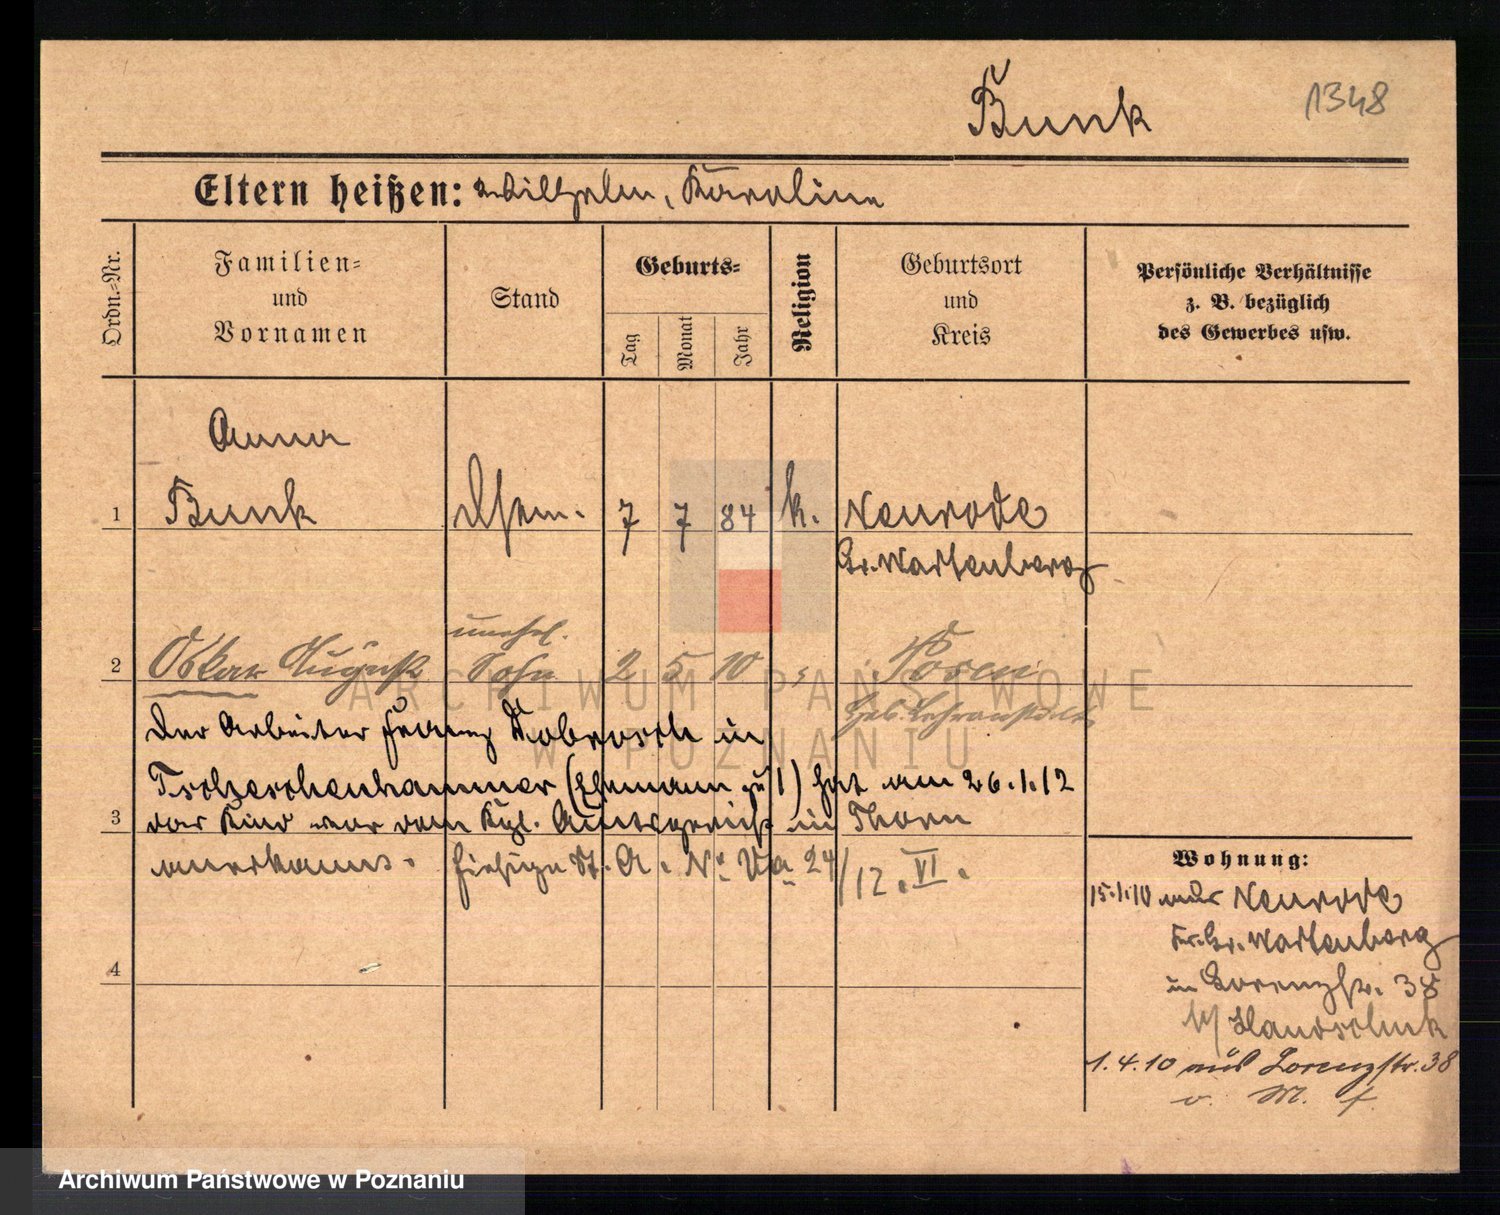 Bunk
1348
Eltern heißen: Wilhelm, Karoline
Ordn.-Nr.
Familien-
und
Vornamen
Stand
Geburts-
Tag
Monat
Jahr
Religion
Geburtsort
und
Kreis
Persönliche Verhältnisse
z. B. bezüglich
des Gewerbes usw.
Anna
1 Bunk 7 7 84 k. Neurode
Gr. Wartenberg
unehel.
2 Oskar August Sohn 2 5 10 " Posen
Der Arbeiter Franz in
(Ehemann zu 1) hat am 26.1.12
3 das Kind vor dem Kgl. Amtsgericht in Thorn
anerkannt. hiesige St. A. No. Va 24/12. VI.
4
Wohnung:
15.1.10 aus Neurode
Kr. Gr. Wartenberg
in Lorenzstr. 38
b/ Handschuk
1.4.10 aus Lorenzstr. 38
v. M. f.
ARCHIWUM PAŃSTWOWE
W POZNANIU
Archiwum Państwowe w Poznaniu